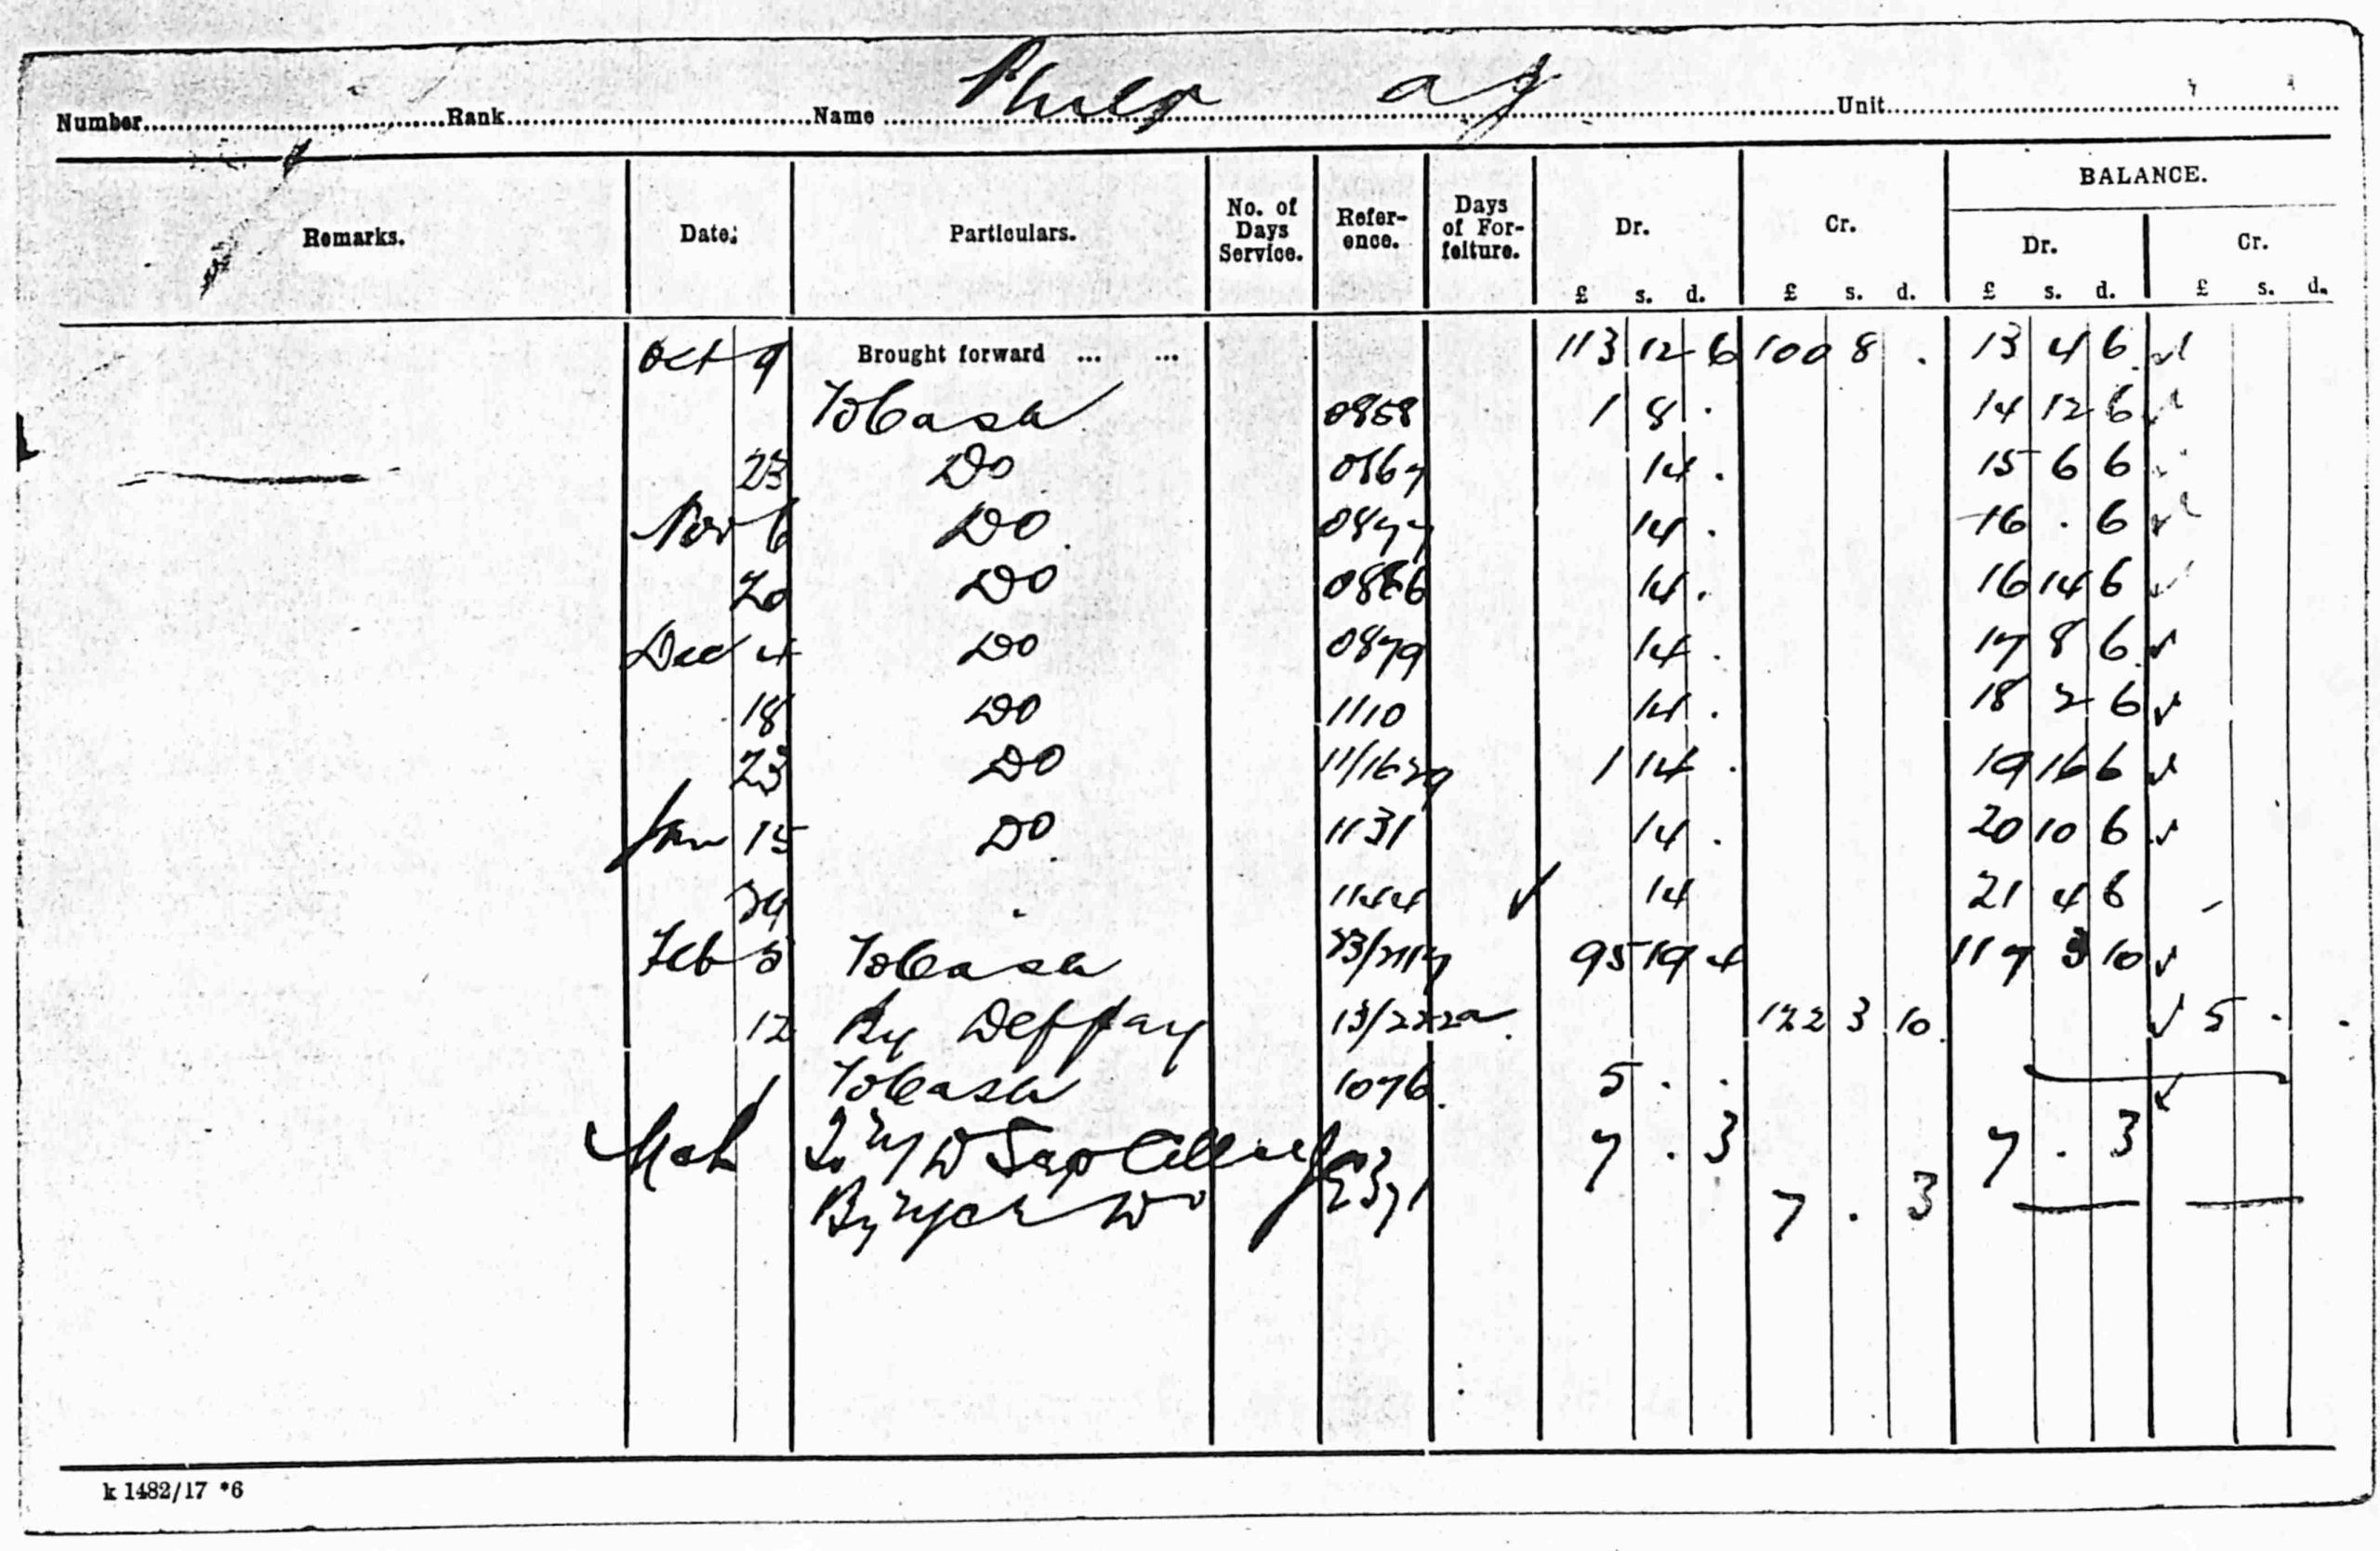 Number Rank Name A J Unit
Remarks. Date. Particulars. No. of Days Service. Reference. Days of Forfeiture. Dr. Cr. BALANCE.
Dr. Cr.
£ s. d. £ s. d. £ s. d. £ s. d.
Oct 9 Brought forward ... ... 113 12 6 100 8 . 13 4 6
To Cash 0858 1 8 . 14 12 6
23 Do 0867 14 . 15 6 6
Nov 6 Do 0877 14 . 16 . 6
20 Do 14 . 16 14 6
Dec 4 Do 0879 14 . 17 8 6
18 Do 1110 14 . 18 2 6
23 Do 1 14 . 19 16 6
Jan 15 Do 1131 14 . 20 10 6
29 1144 14 21 4 6
Feb 5 To Cash 95 19 4 117 3 10
12 By Def pay 13/222a 122 3 10 5 . .
1 To Cash 1076 5 . .
Mch 7 . 3 7 . 3
By 7 . 3
k 1482/17 *6